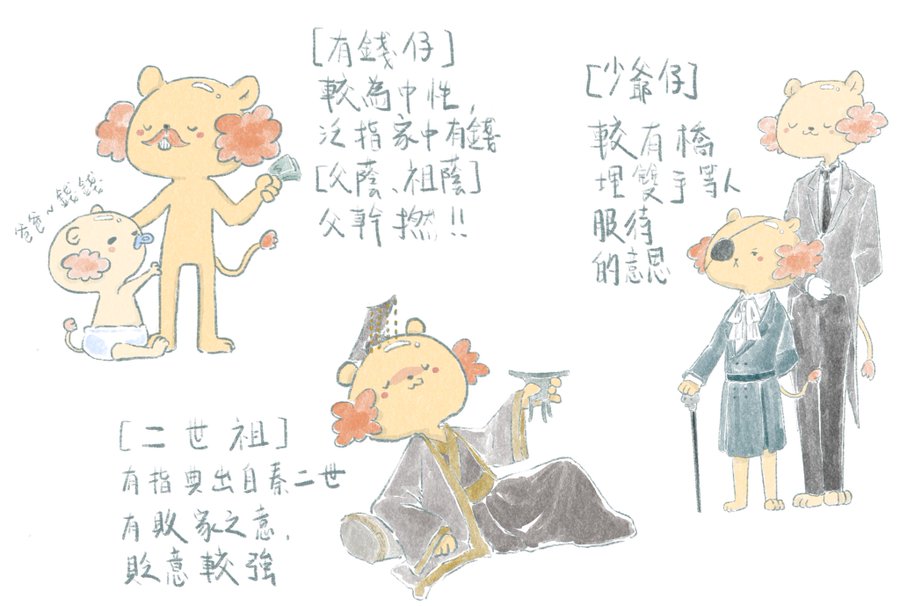 [有錢仔]
較為中性，
泛指家中有錢
[父蔭、祖蔭]
父幹撚!!
爸爸~錢錢
[少爺仔]
較有橋
埋雙手等人
服待
的意思
[二世祖]
有指典出自秦二世
有敗家之意，
貶意較強